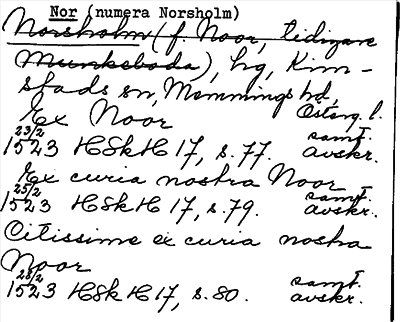 Nor (numera Norsholm)
Norsholm (f. Noor, tidigare
Munkeboda), hg, Kim-
stads sn, Memmings hd,
Östergl.
Ex Noor
23/2
1523 HSkH 17, s. 77. samt. avskr.
Ex curia nostra Noor
25/2
1523 HSkH 17, s. 79. samt. avskr.
Citissime ex curia nostra
Noor
28/2
1523 HSkH 17, s. 80. samt. avskr.